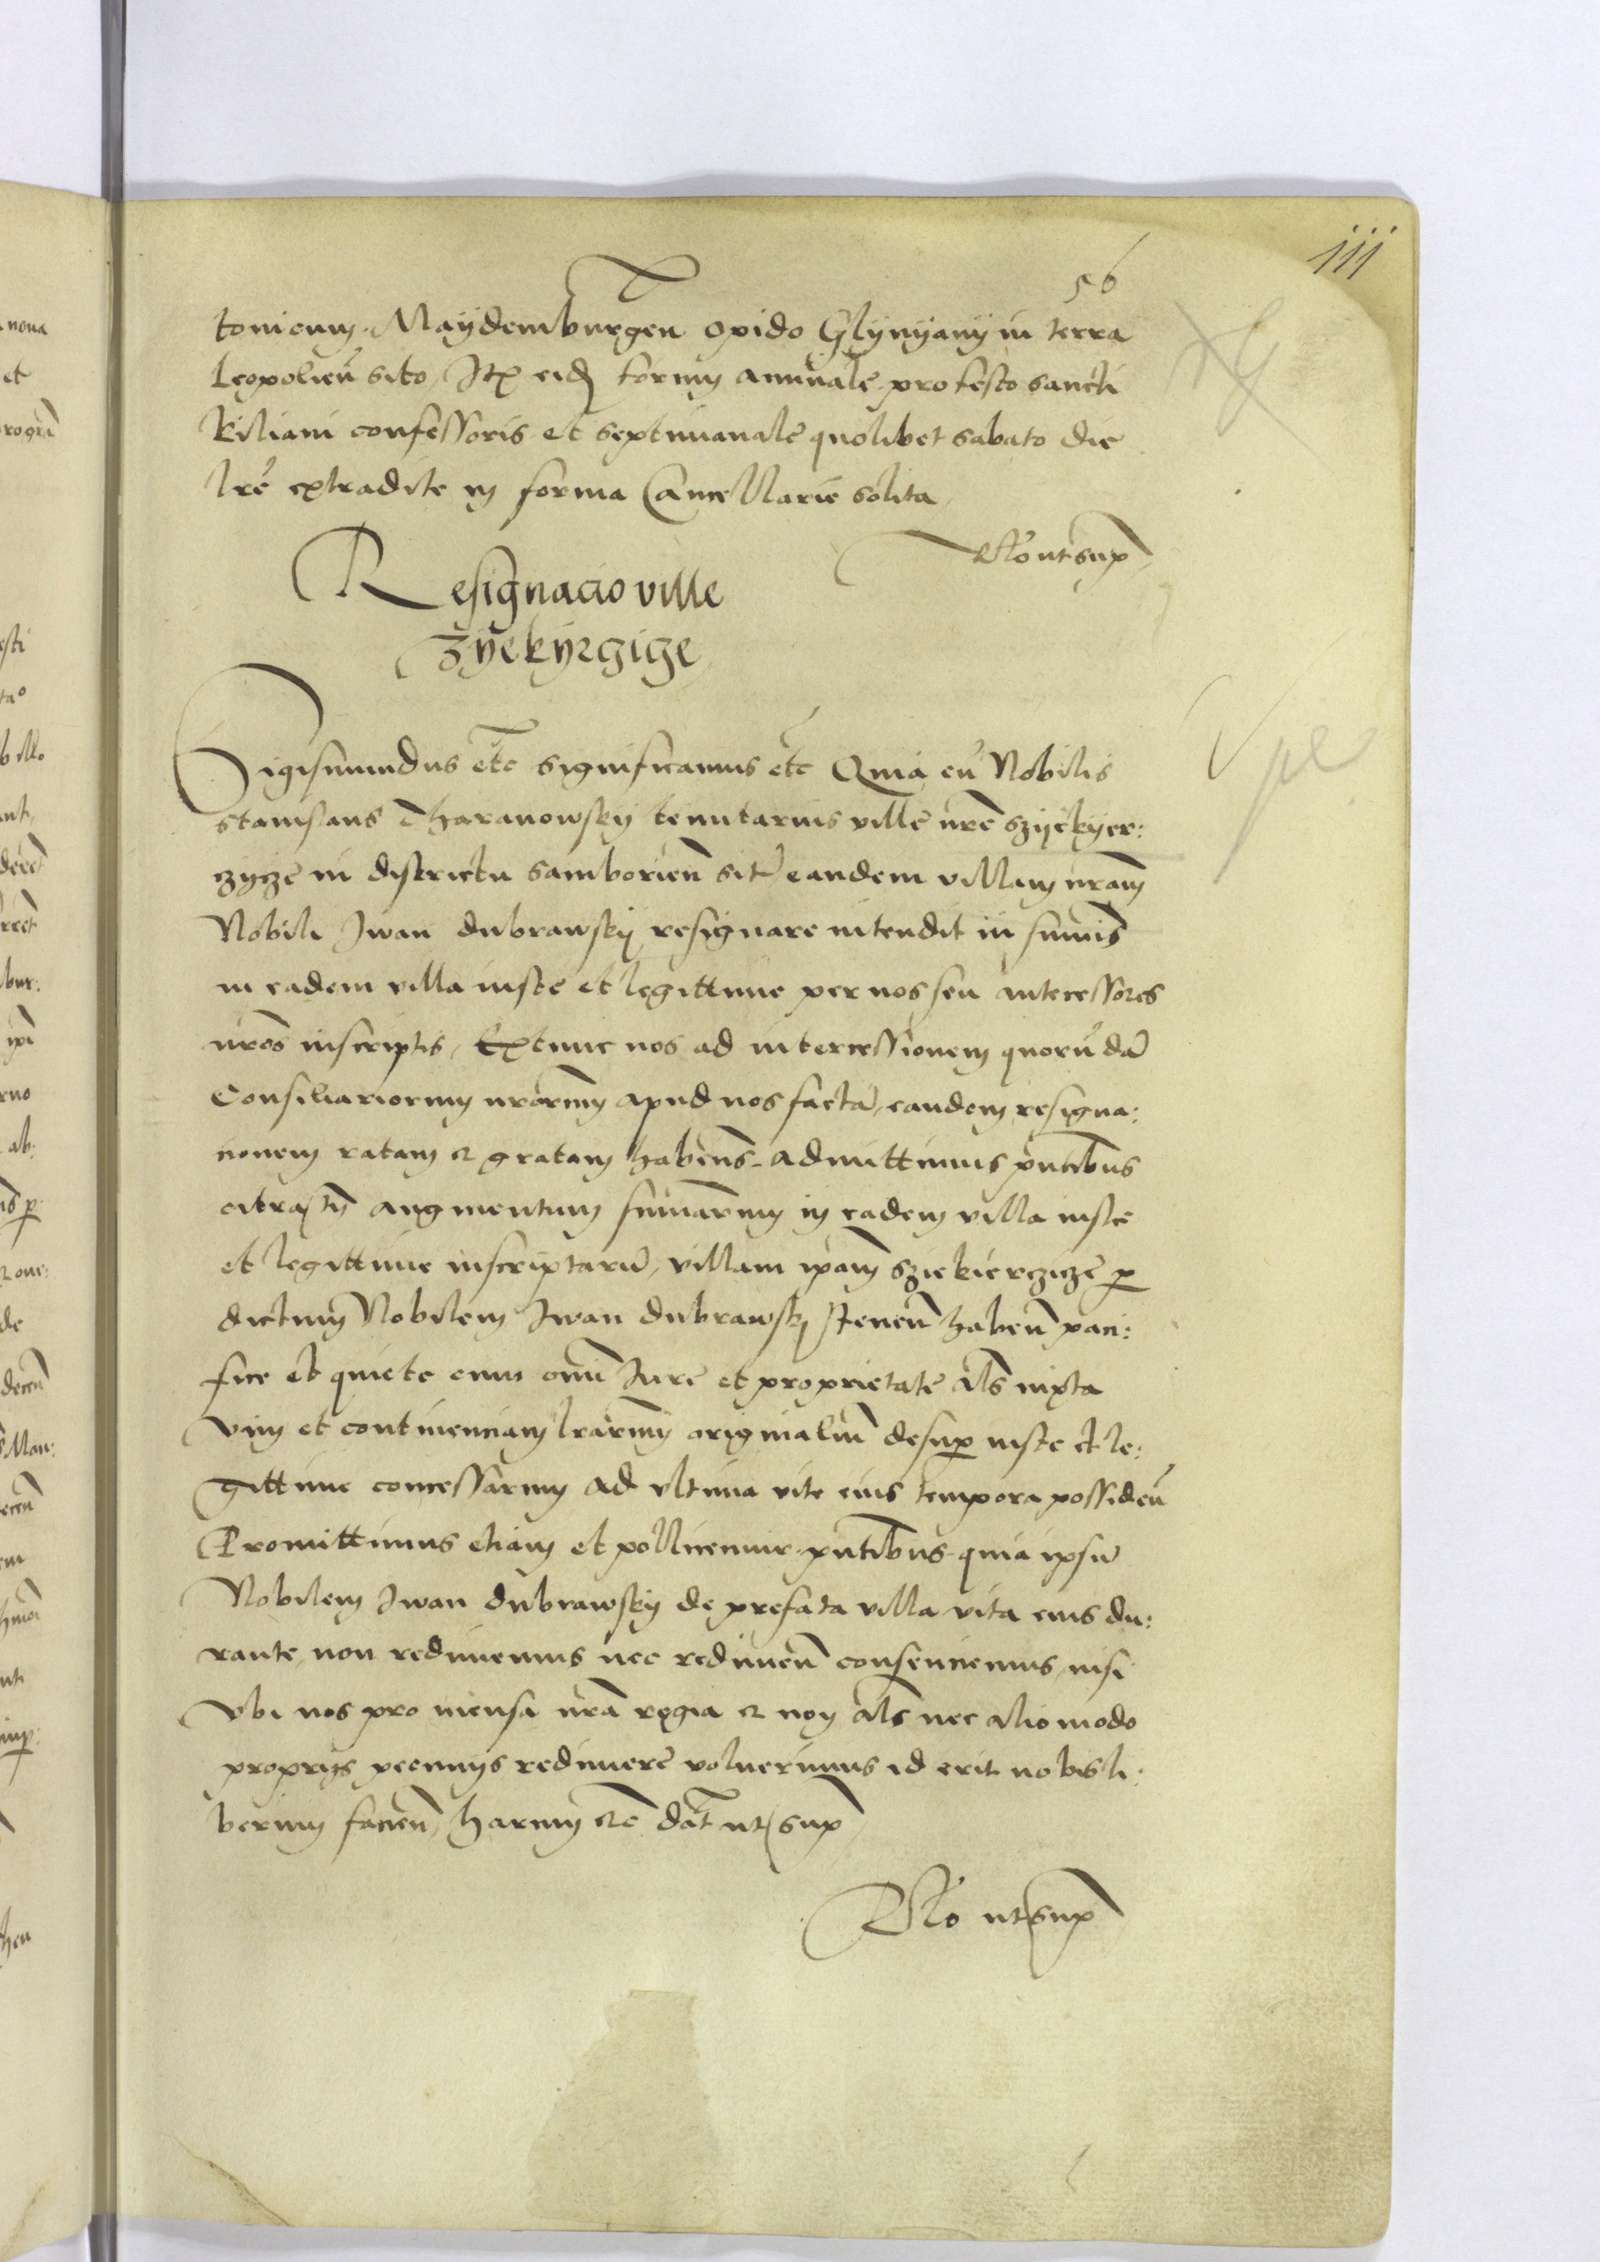 111
56
tonicum Maÿdemburgen opido Glÿnÿanÿ in terra
Leopolien̄ sito Itꝫ eidꝫ forum annuale pro festo sancti
Kiliani confessoris et septimanale quolibet sabato die
lr̄e extradite in forma Cancellarie solita
Rl̄o ut sup̄
Resignacio ville
Zÿekÿrzicze
Sigismundus etc̄ significamus etc̄ Quia cū Nobilis
stanislaus Tharanowskÿ tenutarius ville nr̄e szÿekÿer:
czycze in districtu samborien̄ sit̄ eandem villam nr̄am
Nobili Iwan dubrawskÿ resignare intendit in sum̄is
in eadem villa iuste et legittime per nos seu antecessores
nr̄os inscriptis, Extunc nos ad intercessionem quorūdā
Consiliariorum nr̄orum apud nos factā, eandem resigna:
cionem ratam et gratam haben̄s admittimus pn̄tibus
citra tn̄ augmentum sum̄arum in eadem villa iuste
et legittime inscriptarū, villam ip̄am sziekierczicze p
dictum Nobilem Iwan dubrawskÿ tenen̄ haben̄ paci:
fice et quiete cum om̄i Iure et proprietate al̄s iuxta
vim et continenciam lr̄arum originaliū desup iuste et le:
gittime concessarum ad vltima vite eius tempora possiden̄
Promittimus etiam et pollicemur pn̄tibus quia ipsū
Nobilem Iwan dubrawskÿ de prefata villa vita eius du:
rante, non redimemus nec redimen̄ consenciemus, nisi
vbi nos pro mensa nr̄a regia et non al̄s nec alio modo
proprÿs pecunÿs redimere voluerimus id erit nobis li:
berum facien̄, harum etc̄ dat̄ ut sup̄
Rl̄o ut sup̄